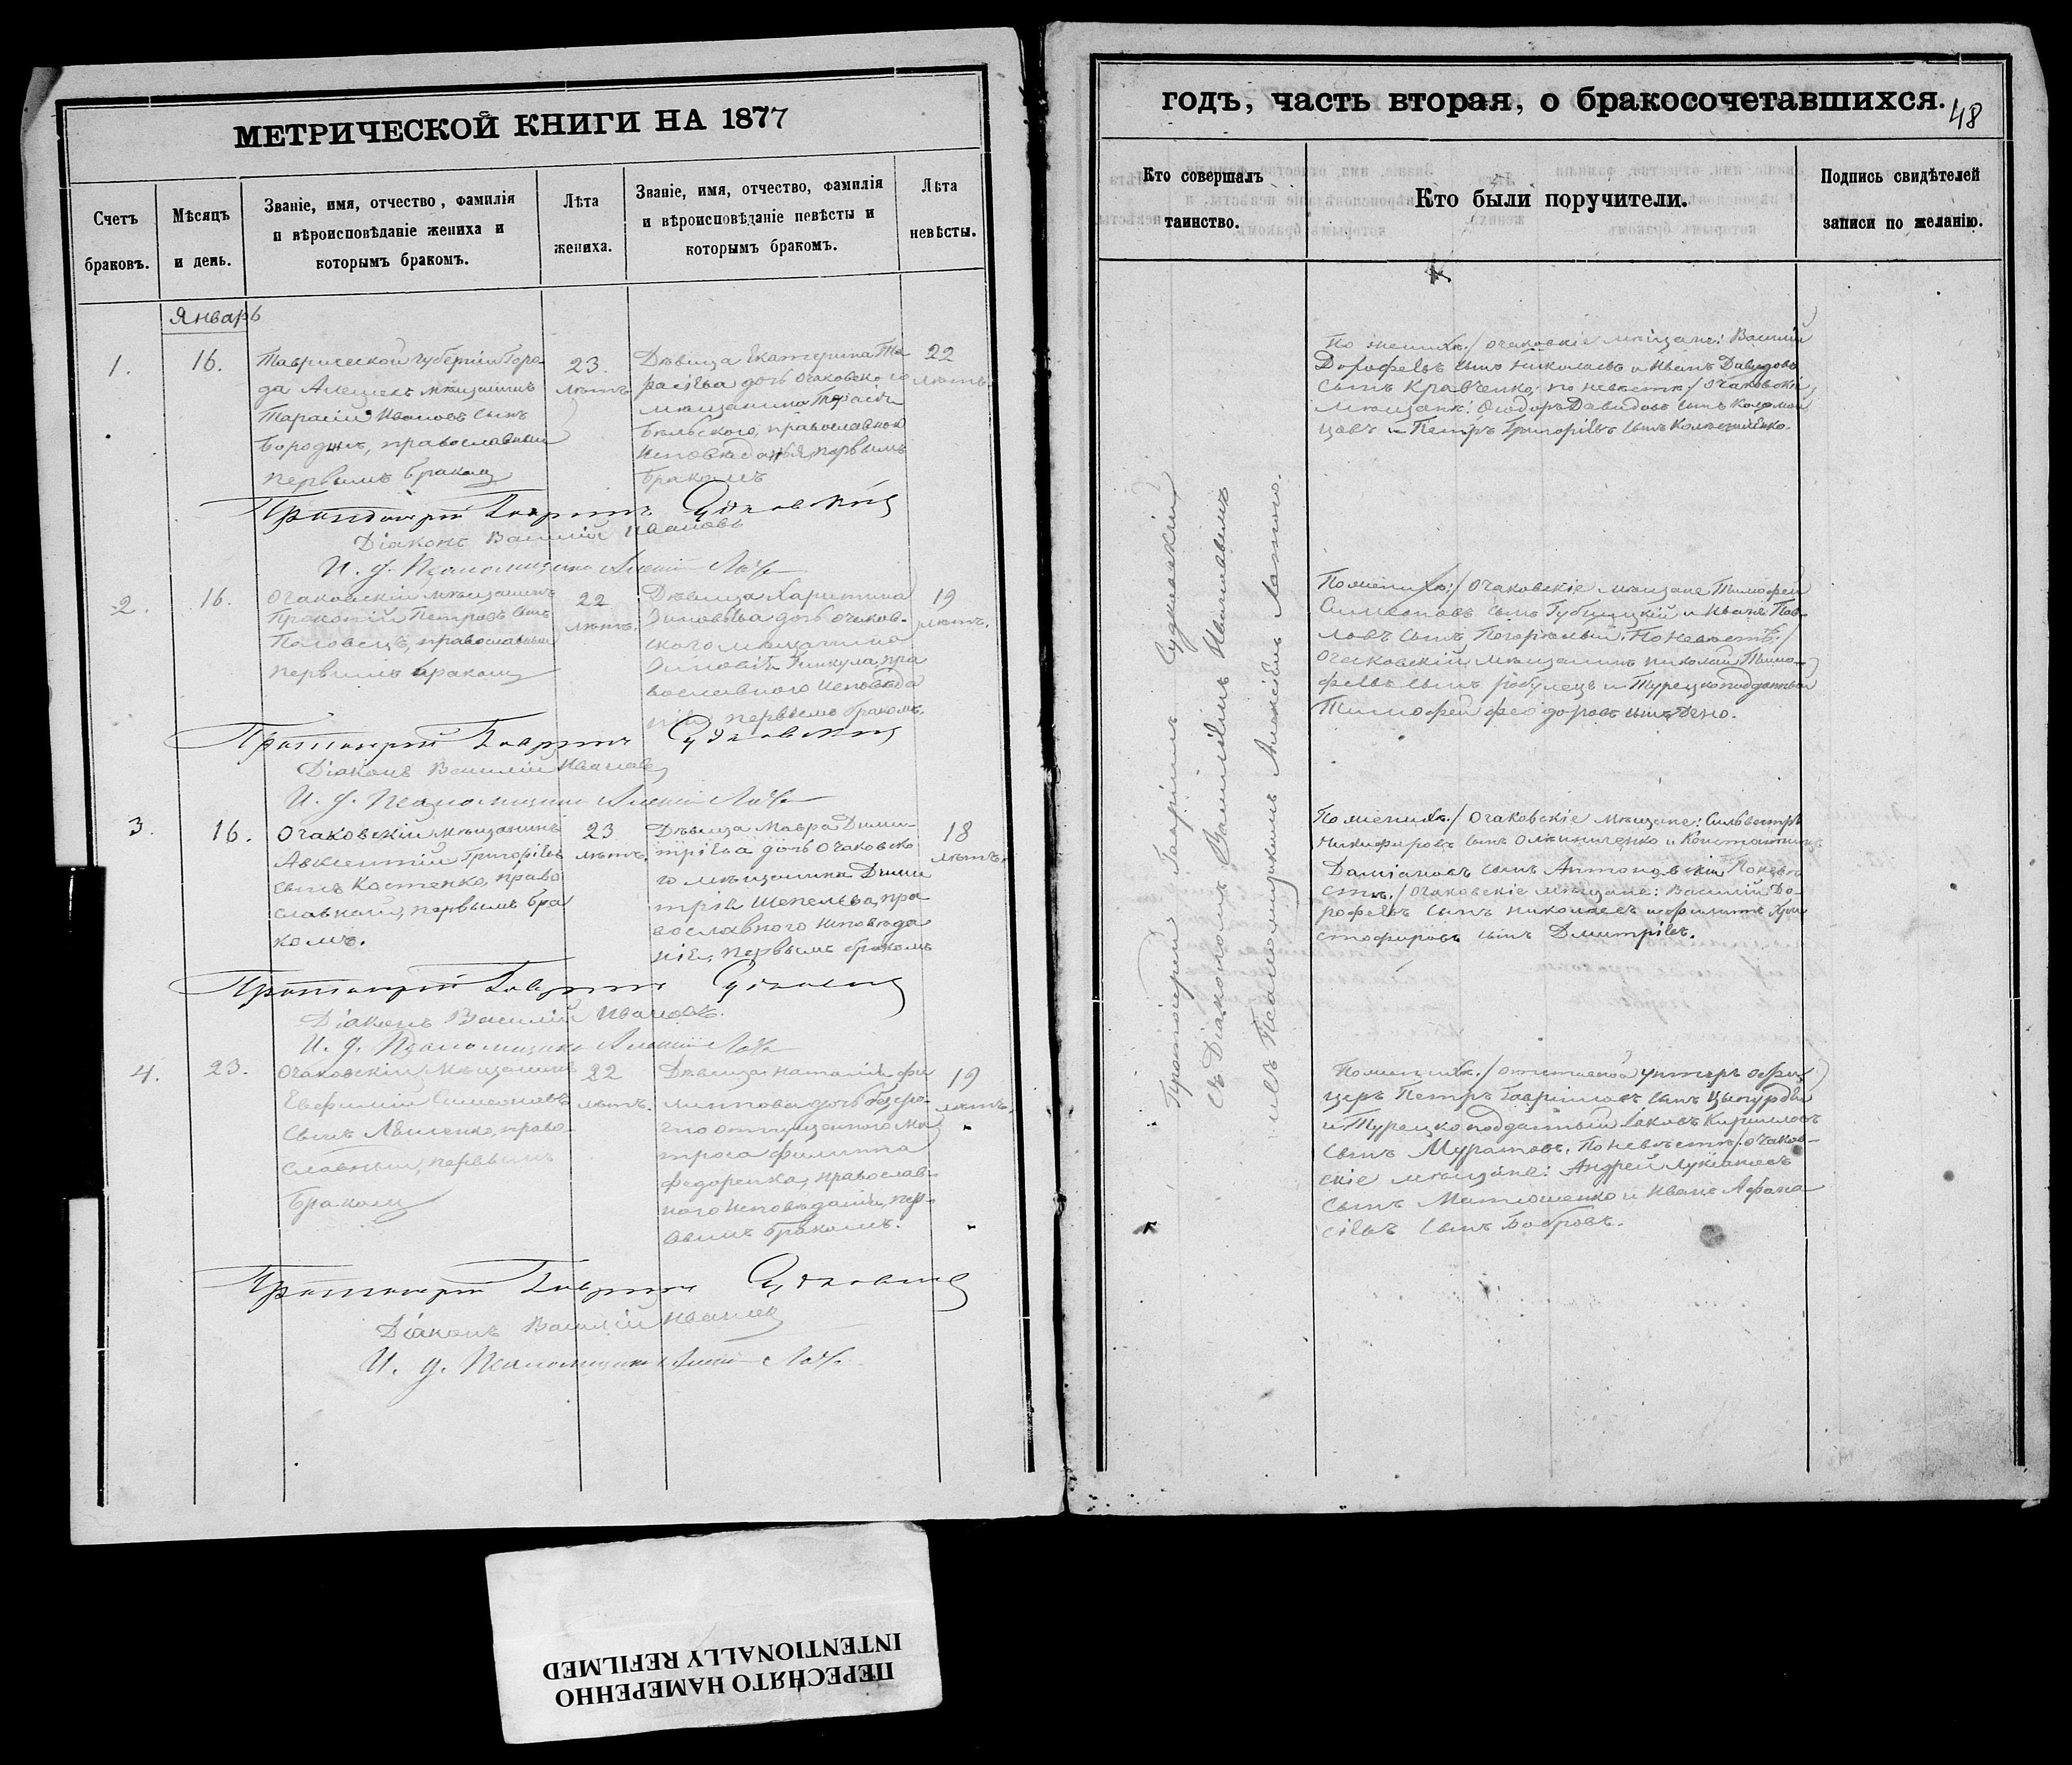 МЕТРИЧЕСКОЙ КНИГИ НА 1877
Счетъ браковъ.
Мѣсяцъ и день.
Званіе, имя, отчество, фамилія
и вѣроисповѣданіе жениха и
которымъ бракомъ.
Лѣта
жениха.
Званіе, имя, отчество, фамилія
и вѣроисповѣданіе невѣсты и
которымъ бракомъ.
Лѣта
невѣсты.
Январь
1.
16.
Таврической губерніи горо
да Алешекъ мѣщанинъ
Тарасій Ивановъ сынъ
Бородинъ, православный
первымъ бракомъ
23.
лѣтъ
Дѣвица Екатерина Та
расіева дочь очаковского
мѣщанина Тарасія
Бѣльского, православнои
исповѣданія, первымъ
бракомъ
22
лѣтъ.
Протоіерей Гавріилъ Судковскій
Діаконъ Василій Ивановъ
И. д. Псаломщика Алексій
2.
16.
Очаковскій мѣщанинъ
Прокопій Петровъ сынъ
Половецъ, православный
первымъ бракомъ
22
лѣтъ.
Дѣвица Харитина
Зиновьева дочь очаков-
ского мѣщанина
пра
вославного исповѣда
нія, первымъ бракомъ.
19
лѣтъ.
Протоіерей Гавріилъ Судковскій
Діаконъ Василій Ивановъ
И. д. Псаломщика Алексій
3.
16.
Очаковскій мѣщанинъ
Авксентій Григорьевъ
сынъ Костенко, право
славный, первымъ бра
комъ.
23
лѣтъ.
Дѣвица Мавра Дими-
тріева дочь очаковско
го мѣщанина Дими
трія Шепелева, пра
вославного исповѣда
нія, первымъ бракомъ
18
лѣтъ.
Протоіерей Гавріилъ Судковскій
Діаконъ Василій Ивановъ.
И. д. Псаломщика Алексій
4.
23.
Очаковскій мѣщанинъ
Евфимій Симеоновъ
сынъ право-
славный, первымъ
бракомъ
22
лѣтъ.
Дѣвица Наталія Фи
липпова дочь безсро-
чно отпущенного Ма
троса Филиппа
Федоренка, православ-
ного исповѣданія, пер-
вымъ бракомъ.
19
лѣтъ.
Протоіерей Гавріилъ Судковскій
Діаконъ Василій Ивановъ
И. д. Псаломщика Алексій
годъ, часть вторая, о бракосочетавшихся.
48
Кто совершалъ
таинство.
Кто были поручители.
Подпись свидѣтелей
записи по желанію.
Протоіерей Гавріилъ Судковскій
съ Діакономъ Василіемъ Ивановымъ
и съ Псаломщикомъ Алексіемъ
По женихѣ:/ очаковскіе мѣщане: Василій
Дорофеевъ сынъ Николаевъ и Иванъ Давидовъ
сынъ Кравченко; по невѣстѣ:/ очаковскіе
мѣщане: Ѳеодоръ Давидовъ сынъ Коломой
цевъ и Петръ Григорьевъ сынъ
По женихѣ:/ Очаковскіе мѣщане Тимофей
Симеоновъ сынъ и Иванъ Пав-
ловъ сынъ Погорѣлый. По невѣстѣ:/
Очаковскій мѣщанинъ Николай Тимо-
феевъ сынъ и Турецкоподданный
Тимофей Феодоровъ сынъ
По женихѣ:/ Очаковскіе мѣщане: Сильвестръ
Никифоровъ сынъ Олѣйниченко и Константинъ
Даміановъ сынъ Антоновскій По невѣ
стѣ:/ Очаковскіе мѣщане: Василій До-
рофеевъ сынъ Николаевъ и Филиппъ Хри
стофоровъ сынъ Димитріевъ.
По женихѣ:/ отставной унтеръ офи
церъ Петръ Гавріиловъ сынъ
и Турецкоподданный Іаковъ Кирилловъ
сынъ Муратовъ. По невѣстѣ:/ очаков-
скіе мѣщане: Андрей Лукіановъ
сынъ Матюшенко и Иванъ Афана
сіевъ сынъ Бобровъ.
ПЕРЕСНЯТО НАМЕРЕННО
INTENTIONALLY REFILMED